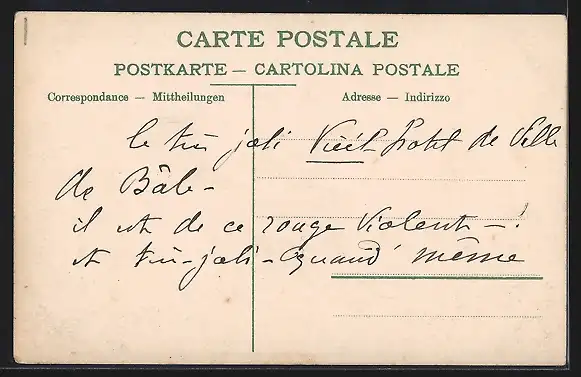 CARTE POSTALE
POSTKARTE — CARTOLINA POSTALE
Correspondance — Mittheilungen
Adresse — Indirizzo
le très joli Vieil Hotel de Ville
de Bâle -
il est de ce rouge violent - !
et très-joli - quand même